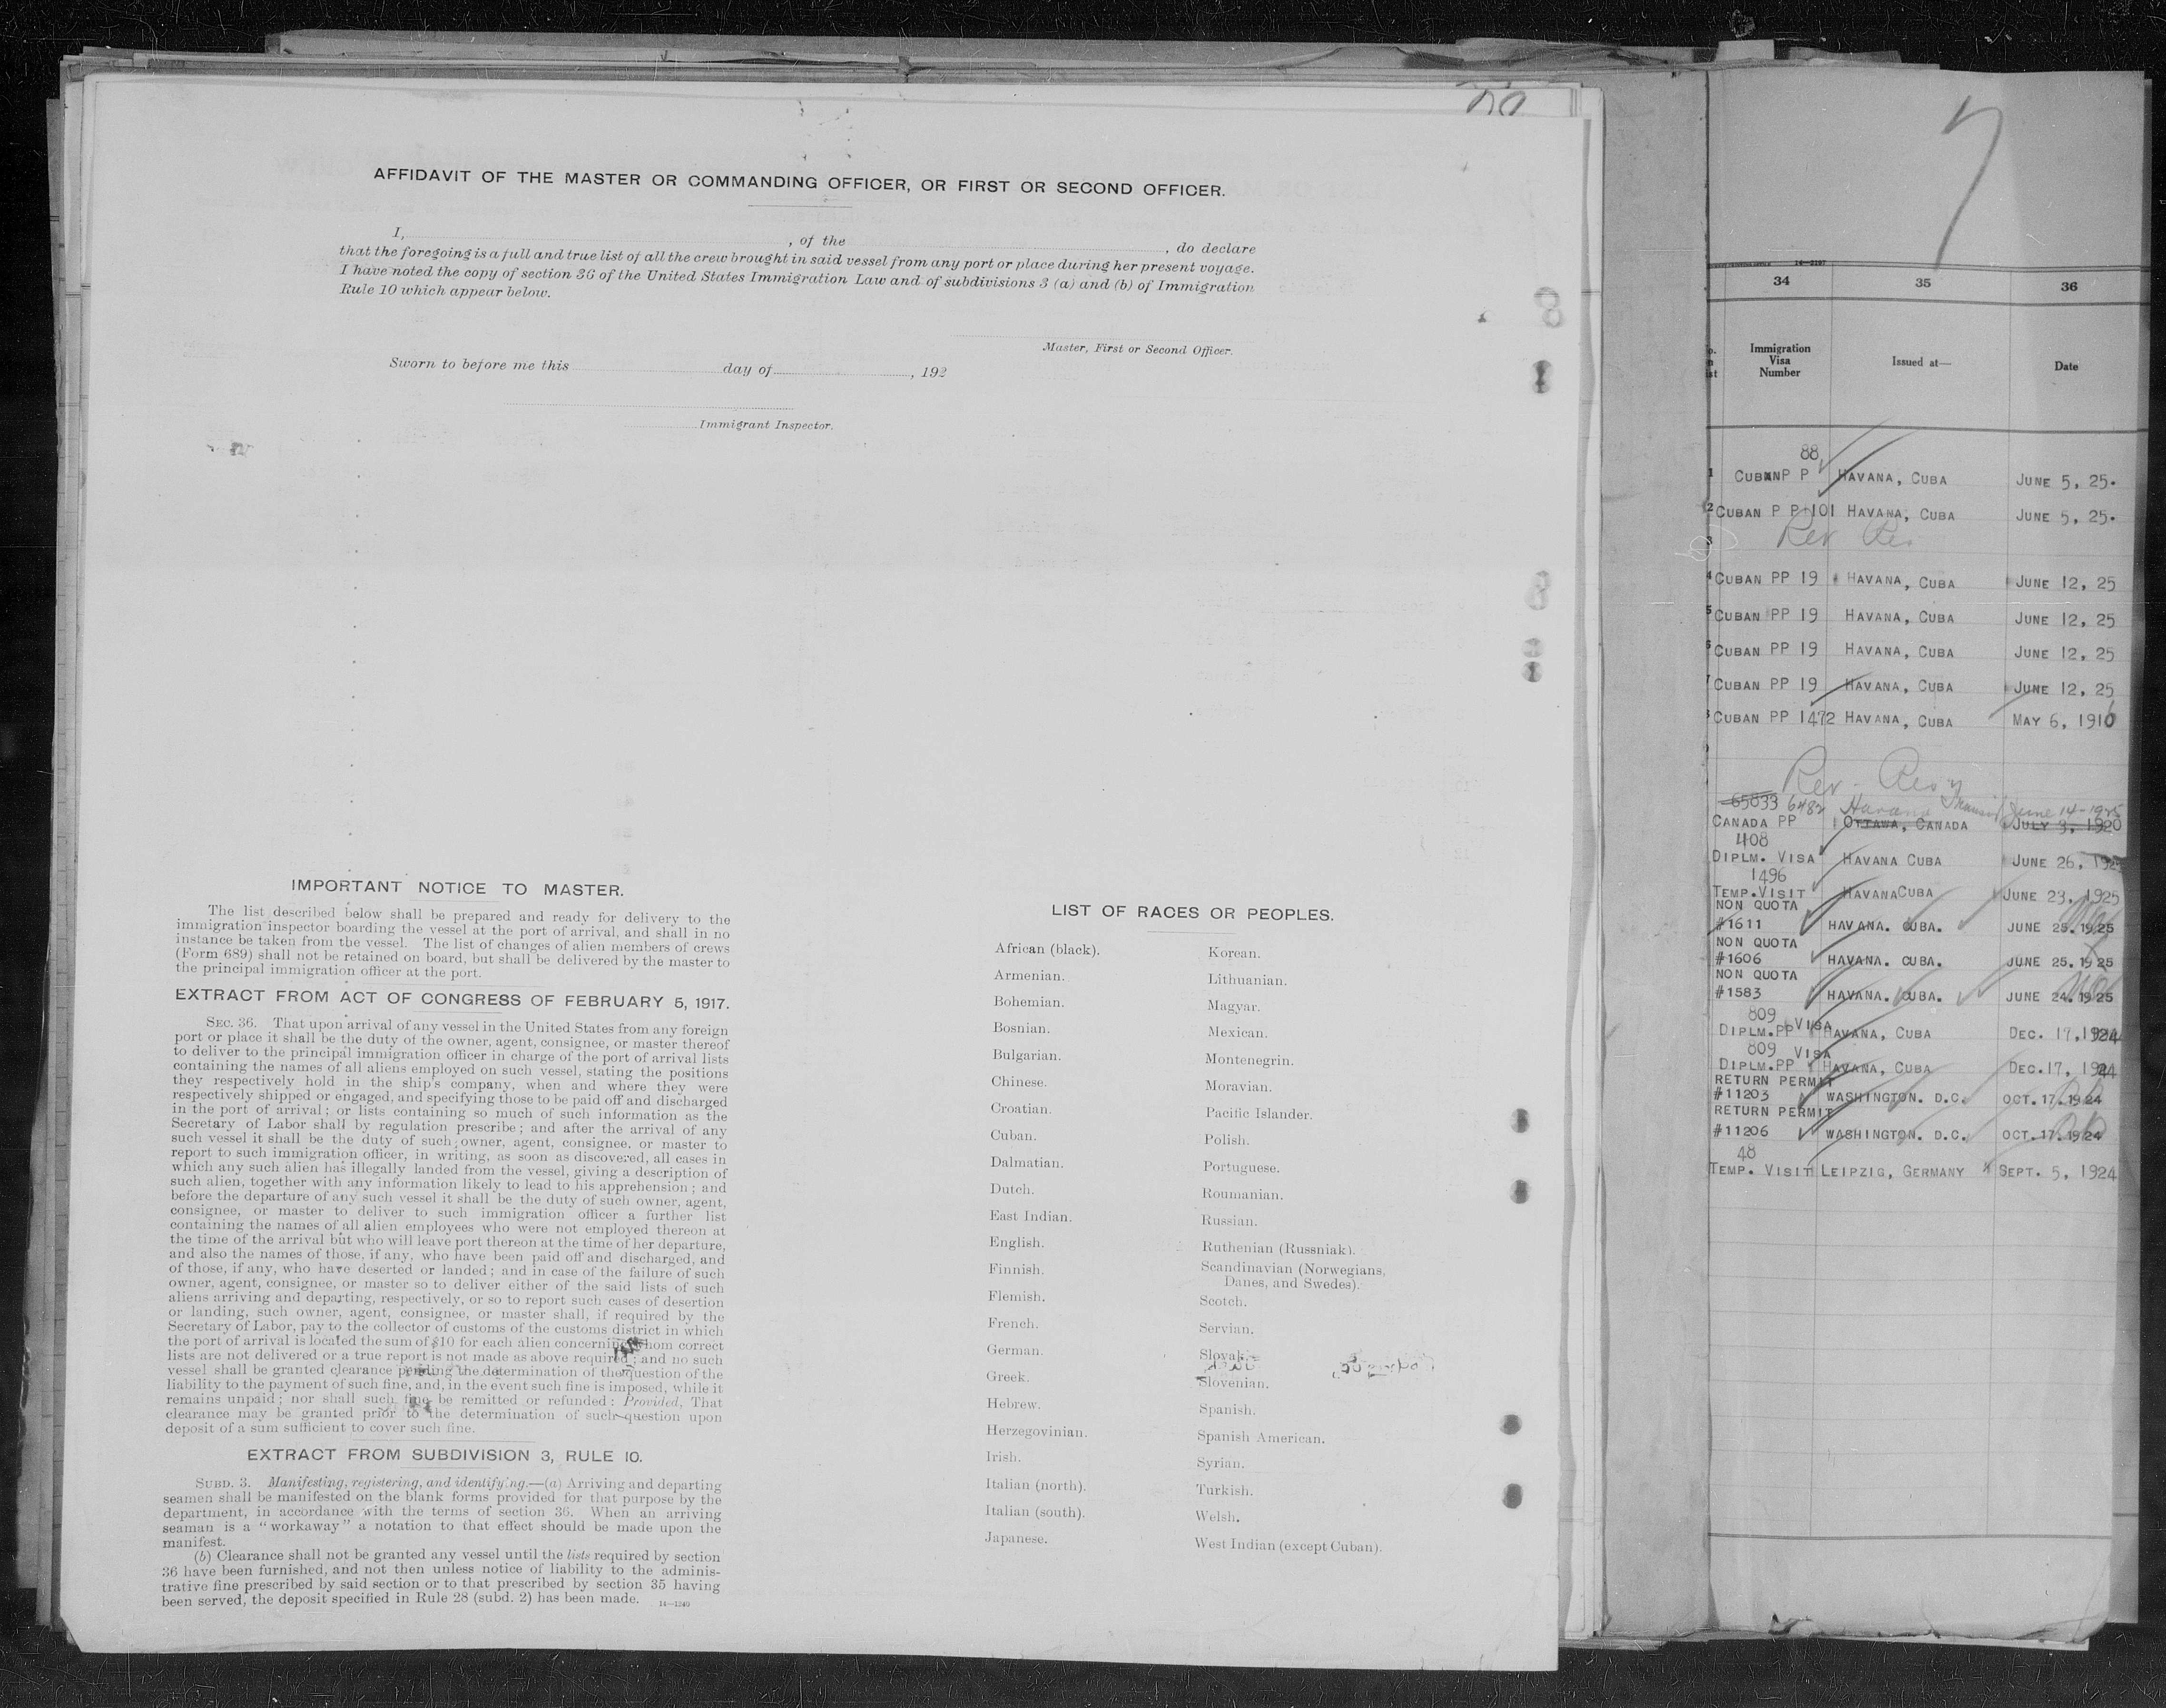 AFFIDAVIT OF THE MASTER OR COMMANDING OFFICER, OR FIRST OR SECOND OFFICER.
I, , of the , do declare
that the foregoing is a full and true list of all the crew brought in said vessel from any port or place during her present voyage.
I have noted the copy of section 36 of the United States Immigration Law and of subdivisions 3 (a) and (b) of Immigration
Rule 10 which appear below.
Master, First or Second Officer.
Sworn to before me this day of , 192
Immigrant Inspector.
IMPORTANT NOTICE TO MASTER.
The list described below shall be prepared and ready for delivery to the
immigration inspector boarding the vessel at the port of arrival, and shall in no
instance be taken from the vessel. The list of changes of alien members of crews
(Form 689) shall not be retained on board, but shall be delivered by the master to
the principal immigration officer at the port.
EXTRACT FROM ACT OF CONGRESS OF FEBRUARY 5, 1917.
SEC. 36. That upon arrival of any vessel in the United States from any foreign
port or place it shall be the duty of the owner, agent, consignee, or master thereof
to deliver to the principal immigration officer in charge of the port of arrival lists
containing the names of all aliens employed on such vessel, stating the positions
they respectively hold in the ship's company, when and where they were
respectively shipped or engaged, and specifying those to be paid off and discharged
in the port of arrival; or lists containing so much of such information as the
Secretary of Labor shall by regulation prescribe; and after the arrival of any
such vessel it shall be the duty of such owner, agent, consignee, or master to
report to such immigration officer, in writing, as soon as discovered, all cases in
which any such alien has illegally landed from the vessel, giving a description of
such alien, together with any information likely to lead to his apprehension; and
before the departure of any such vessel it shall be the duty of such owner, agent,
consignee, or master to deliver to such immigration officer a further list
containing the names of all alien employees who were not employed thereon at
the time of the arrival but who will leave port thereon at the time of her departure,
and also the names of those, if any, who have been paid off and discharged, and
of those, if any, who have deserted or landed; and in case of the failure of such
owner, agent, consignee, or master so to deliver either of the said lists of such
aliens arriving and departing, respectively, or so to report such cases of desertion
or landing, such owner, agent, consignee, or master shall, if required by the
Secretary of Labor, pay to the collector of customs of the customs district in which
the port of arrival is located the sum of $10 for each alien concerning whom correct
lists are not delivered or a true report is not made as above required; and no such
vessel shall be granted clearance pending the determination of the question of the
liability to the payment of such fine, and, in the event such fine is imposed, while it
remains unpaid; nor shall such fine be remitted or refunded: Provided, That
clearance may be granted prior to the determination of such question upon
deposit of a sum sufficient to cover such fine.
EXTRACT FROM SUBDIVISION 3, RULE 10.
SUBD. 3. Manifesting, registering, and identifying.—(a) Arriving and departing
seamen shall be manifested on the blank forms provided for that purpose by the
department, in accordance with the terms of section 36. When an arriving
seaman is a "workaway" a notation to that effect should be made upon the
manifest.
(b) Clearance shall not be granted any vessel until the lists required by section
36 have been furnished, and not then unless notice of liability to the adminis-
trative fine prescribed by said section or to that prescribed by section 35 having
been served, the deposit specified in Rule 28 (subd. 2) has been made. 14—1240
LIST OF RACES OR PEOPLES.
African (black).
Armenian.
Bohemian.
Bosnian.
Bulgarian.
Chinese.
Croatian.
Cuban.
Dalmatian.
Dutch.
East Indian.
English.
Finnish.
Flemish.
French.
German.
Greek.
Hebrew.
Herzegovinian.
Irish.
Italian (north).
Italian (south).
Japanese.
Korean.
Lithuanian.
Magyar.
Mexican.
Montenegrin.
Moravian.
Pacific Islander.
Polish.
Portuguese.
Roumanian.
Russian.
Ruthenian (Russniak).
Scandinavian (Norwegians,
Danes, and Swedes).
Scotch.
Servian.
Slovak.
Slovenian.
Spanish.
Spanish American.
Syrian.
Turkish.
Welsh.
West Indian (except Cuban).
7
34 35 36
Immigration
Visa
Number
Issued at—
Date
88
1 CUBAN P P HAVANA, CUBA JUNE 5, 25.
2 CUBAN P P 101 HAVANA, CUBA JUNE 5, 25.
3 Rev Res
4 CUBAN PP 19 HAVANA, CUBA JUNE 12, 25
5 CUBAN PP 19 HAVANA, CUBA JUNE 12, 25
6 CUBAN PP 19 HAVANA, CUBA JUNE 12, 25
7 CUBAN PP 19 HAVANA, CUBA JUNE 12, 25
8 CUBAN PP 1472 HAVANA, CUBA MAY 6, 1916
Rev - Res
65033 6482 Havana June 14-1925
CANADA PP OTTAWA, CANADA JULY 3, 1920
408
DIPLM. VISA HAVANA CUBA JUNE 26, 1925
1496
TEMP. VISIT HAVANA CUBA JUNE 23, 1925
NON QUOTA
#1611 HAVANA. CUBA. JUNE 25. 1925
NON QUOTA
#1606 HAVANA. CUBA. JUNE 25. 1925
NON QUOTA
#1583 HAVANA. CUBA. JUNE 24. 1925
809
DIPLM. PP VISA HAVANA, CUBA DEC. 17, 1924
809
DIPLM. PP VISA HAVANA, CUBA DEC. 17, 1924
RETURN PERMIT
#11203 WASHINGTON. D.C. OCT. 17. 1924
RETURN PERMIT
#11206 WASHINGTON. D.C. OCT. 17. 1924
48
TEMP. VISIT LEIPZIG, GERMANY SEPT. 5, 1924